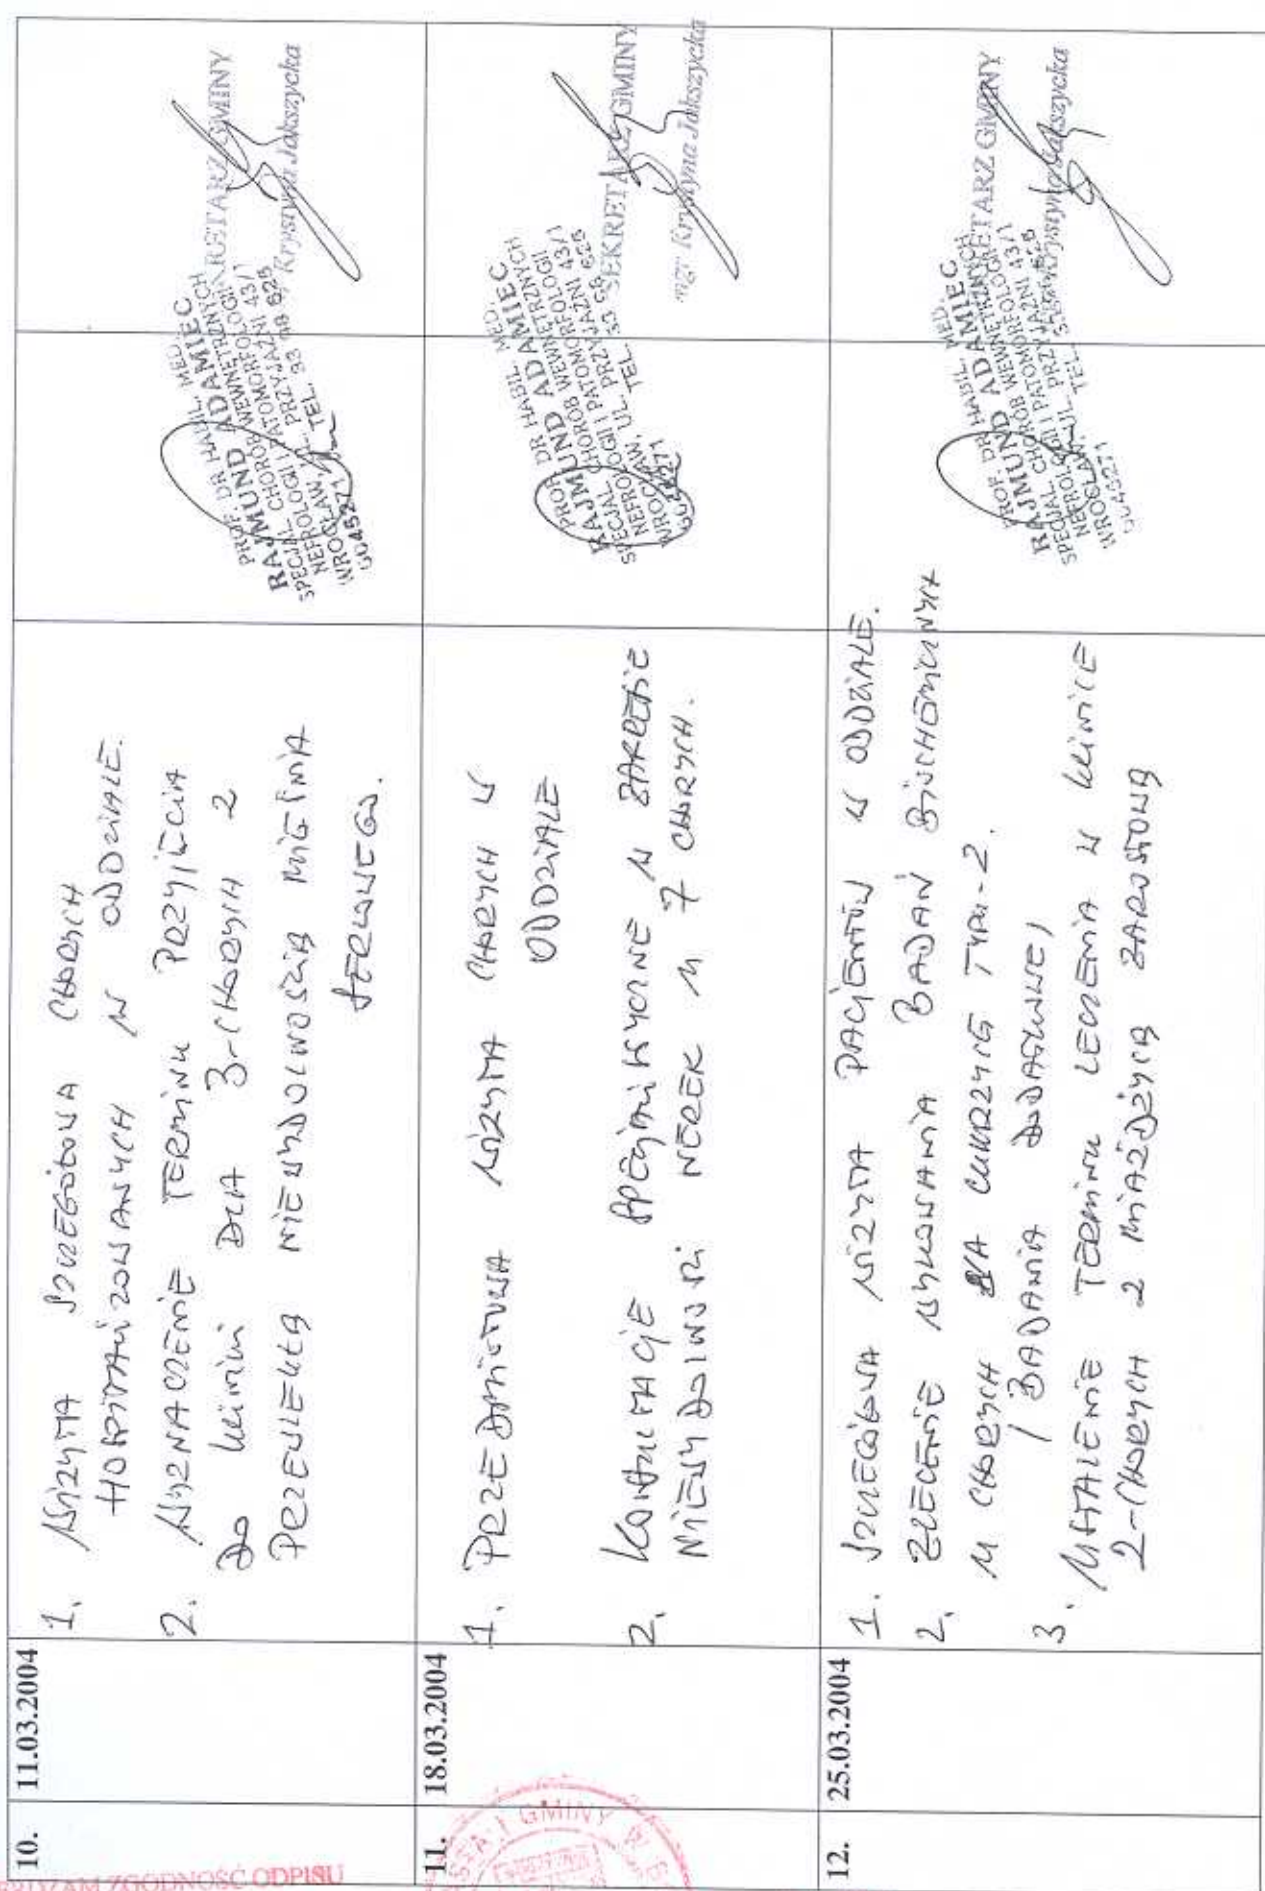 10.
11.03.2004
1. WIZYTA SZCZEGÓŁOWA CHORYCH
HOSPITALIZOWANYCH W ODDZIALE.
2. WYZNACZENIE TERMINU PRZYJĘCIA
DO KLINIKI DLA 3-CHORYCH Z
PRZEWLEKŁĄ NIEWYDOLNOŚCIĄ MIĘŚNIA
SERCOWEGO.
PROF. DR HABIL. MED.
RAJMUND ADAMIEC
SPECJAL. CHORÓB WEWNĘTRZNYCH
NEFROLOGII I PATOMORFOLOGII
WROCŁAW, UL. PRZYJAŹNI 43/1
TEL. 33 98 625
0045271
SEKRETARZ GMINY
Krystyna Jakszycka
11.
18.03.2004
1. PRZEDMIOTOWA WIZYTA CHORYCH W
ODDZIALE
2. KONSULTACJE SPECJALISTYCZNE W ZAKRESIE
NIEWYDOLNOŚCI NEREK U 7 CHORYCH.
PROF. DR HABIL. MED.
RAJMUND ADAMIEC
SPECJAL. CHORÓB WEWNĘTRZNYCH
NEFROLOGII I PATOMORFOLOGII
WROCŁAW, UL. PRZYJAŹNI 43/1
TEL. 33 98 625
0045271
SEKRETARZ GMINY
mgr Krystyna Jakszycka
12.
25.03.2004
1. SZCZEGÓŁOWA WIZYTA PACJENTÓW W ODDZIALE.
2. ZLECENIE WYKONANIA BADAŃ BIOCHEMICZNYCH
U CHORYCH NA CUKRZYCĘ TYPU-2.
/BADANIA DODATKOWE/
3. USTALENIE TERMINU LECZENIA W KLINICE
2-CHORYCH Z MIAŻDŻYCĄ ZAROSTOWĄ
PROF. DR HABIL. MED.
RAJMUND ADAMIEC
SPECJAL. CHORÓB WEWNĘTRZNYCH
NEFROLOGII I PATOMORFOLOGII
WROCŁAW, UL. PRZYJAŹNI 43/1
0045271
SEKRETARZ GMINY
Krystyna Jakszycka
ZGODNOŚĆ ODPISU
GMINY